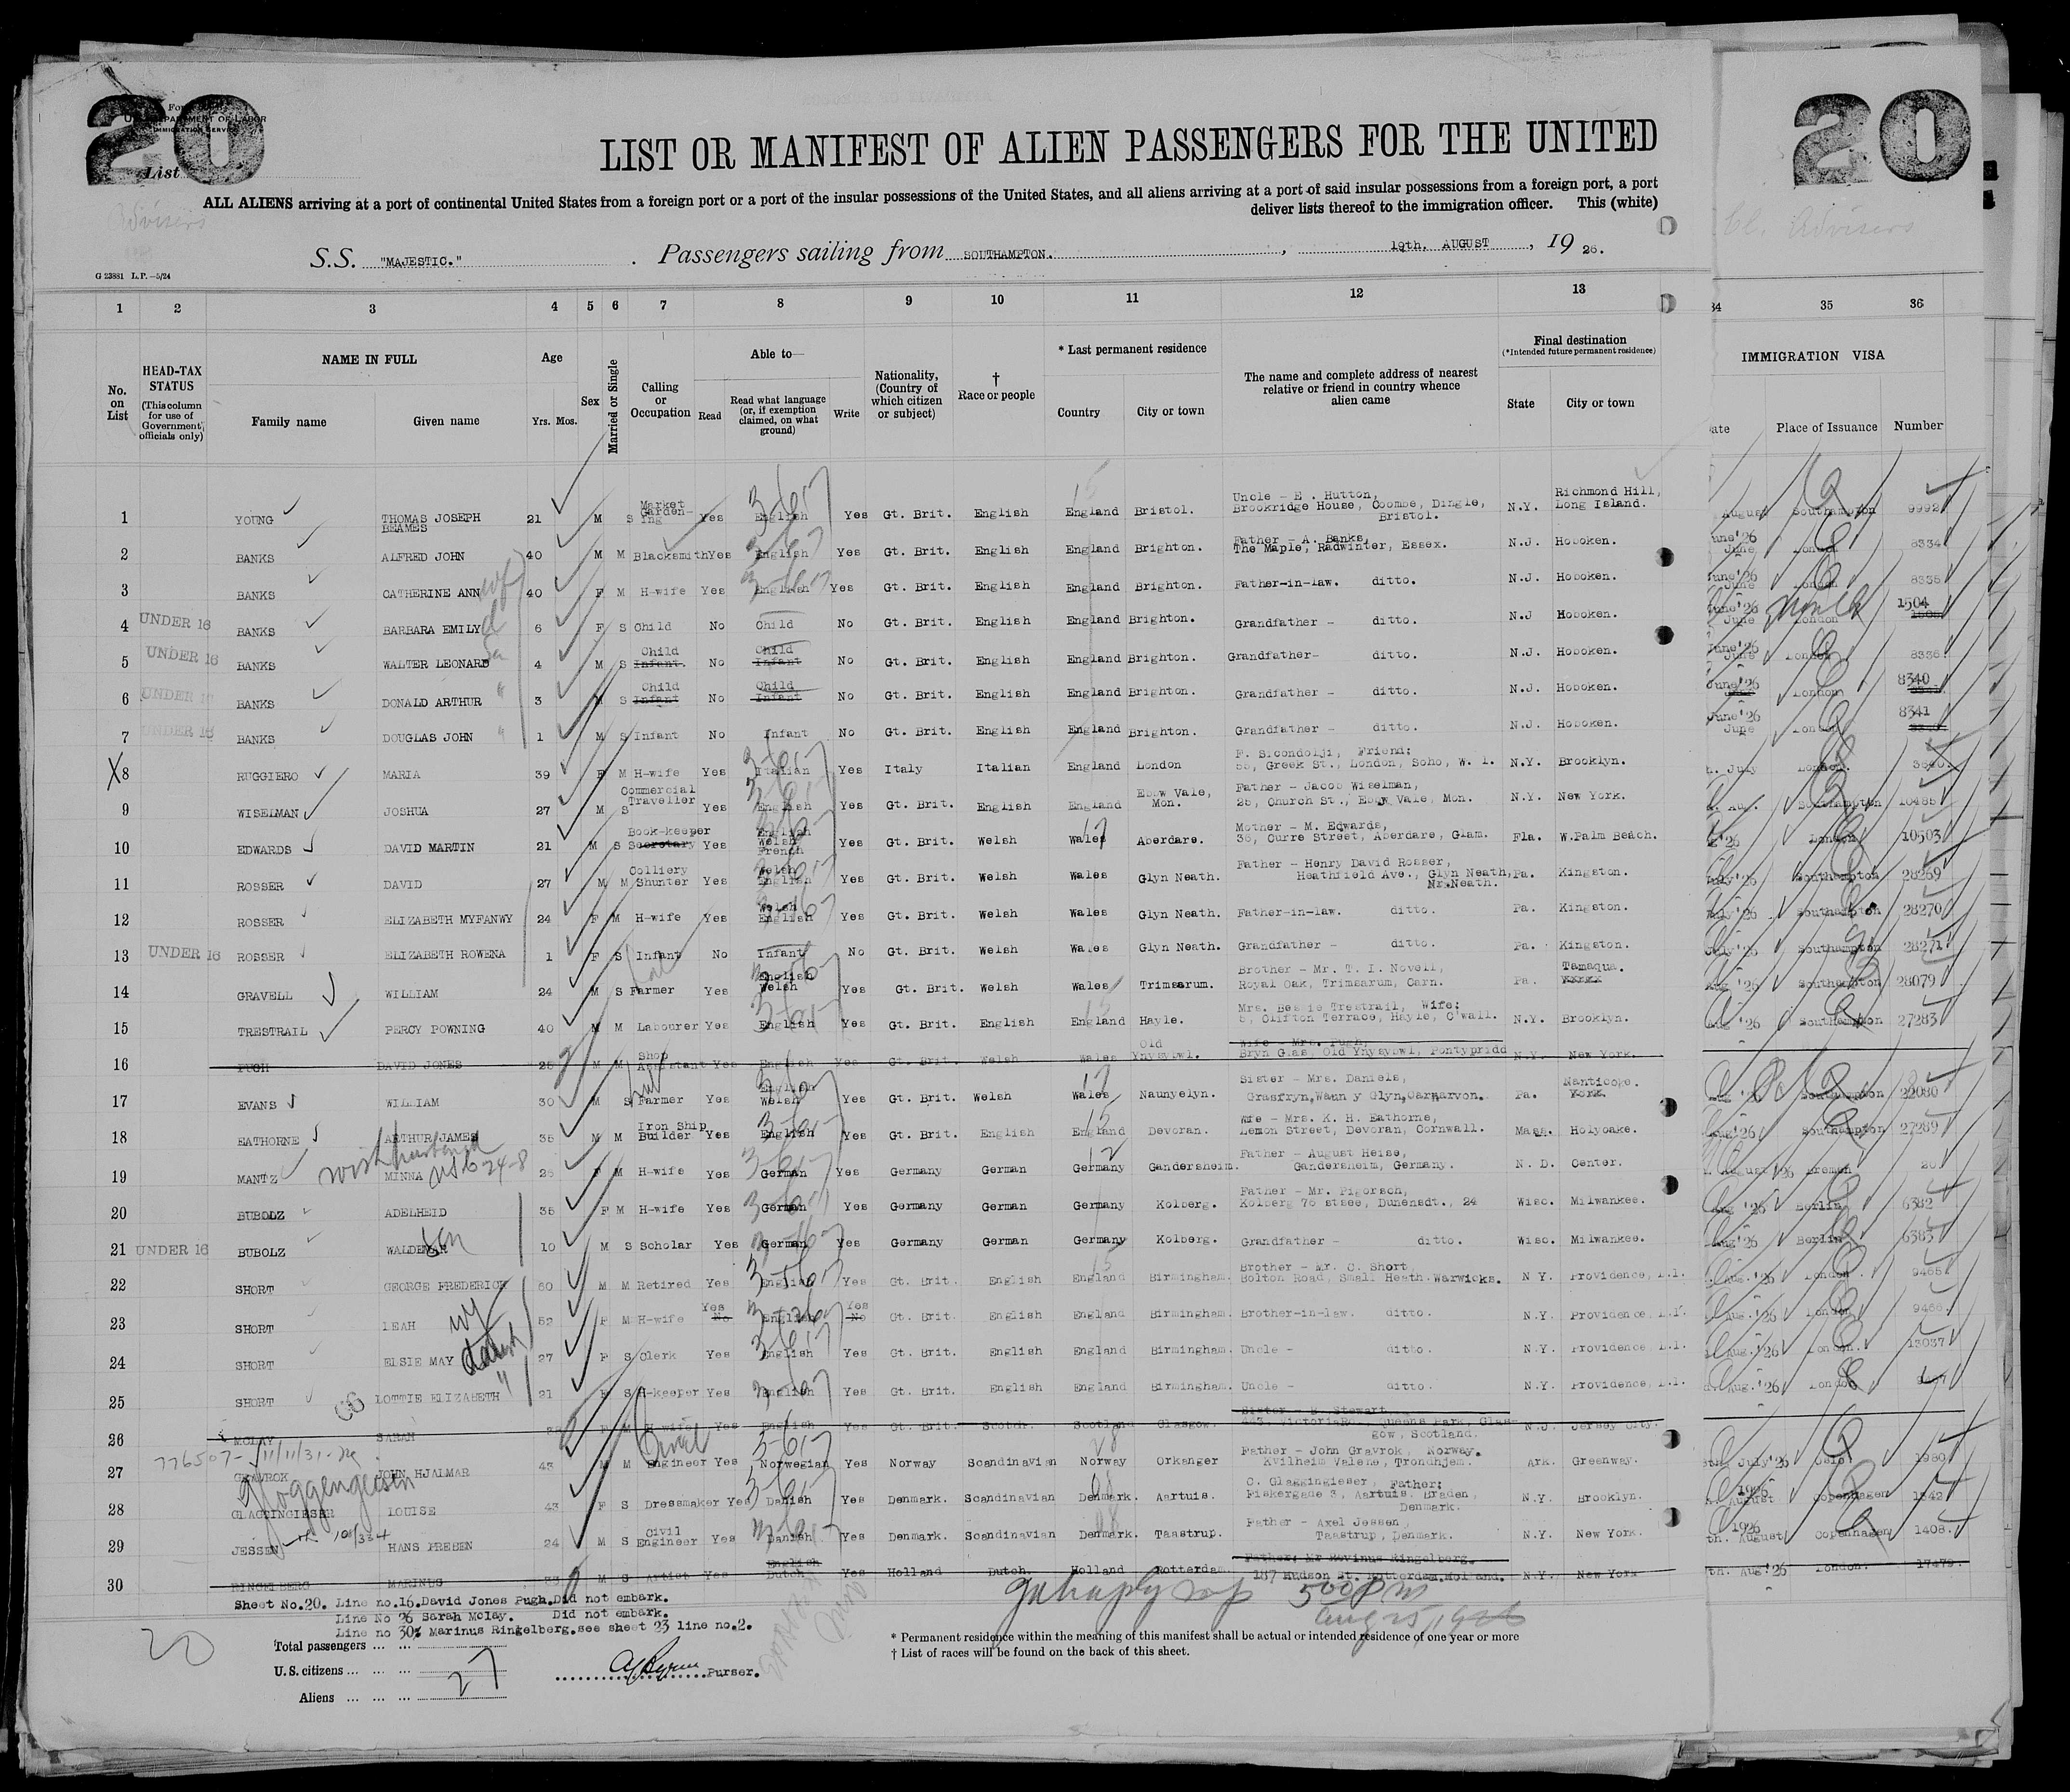 20
U.S. DEPARTMENT OF LABOR
IMMIGRATION SERVICE
List
LIST OR MANIFEST OF ALIEN PASSENGERS FOR THE UNITED
ALL ALIENS arriving at a port of continental United States from a foreign port or a port of the insular possessions of the United States, and all aliens arriving at a port of said insular possessions from a foreign port, a port
deliver lists thereof to the immigration officer. This (white)
S.S. "MAJESTIC." Passengers sailing from SOUTHAMPTON. , 19th. AUGUST , 19 26.
G 23881 L.P.—5/24
1 2 3 4 5 6 7 8 9 10 11 12 13
No. on List
HEAD-TAX STATUS (This column for use of Government officials only)
NAME IN FULL Family name Given name
Age Yrs. Mos.
Sex
Married or Single
Calling or Occupation
Able to— Read Read what language (or, if exemption claimed, on what ground) Write
Nationality, (Country of which citizen or subject)
† Race or people
* Last permanent residence Country City or town
The name and complete address of nearest relative or friend in country whence alien came
Final destination (*Intended future permanent residence) State City or town
1 YOUNG THOMAS JOSEPH BEAMES 21 M S Market Garden-ing Yes English Yes Gt. Brit. English England Bristol. Uncle - E. Hutton, Brookridge House, Coombe, Dingle, Bristol. N.Y. Richmond Hill, Long Island.
2 BANKS ALFRED JOHN 40 M M Blacksmith Yes English Yes Gt. Brit. English England Brighton. Father - A. Banks, The Maple, Radwinter, Essex. N.J. Hoboken.
3 BANKS CATHERINE ANN wf 40 F M H-wife Yes English Yes Gt. Brit. English England Brighton. Father-in-law. ditto. N.J. Hoboken.
4 UNDER 16 BANKS BARBARA EMILY d 6 F S Child No Child No Gt. Brit. English England Brighton. Grandfather - ditto. N.J Hoboken.
5 UNDER 16 BANKS WALTER LEONARD 4 M S Child Infant. No Child Infant No Gt. Brit. English England Brighton. Grandfather- ditto. N.J. Hoboken.
6 UNDER 16 BANKS DONALD ARTHUR " 3 M S Child Infant No Child Infant No Gt. Brit. English England Brighton. Grandfather - ditto. N.J. Hoboken.
7 UNDER 16 BANKS DOUGLAS JOHN " 1 M S Infant No Infant No Gt. Brit. English England Brighton. Grandfather - ditto. N.J. Hoboken.
X 8 RUGGIERO MARIA 39 F M H-wife Yes Italian Yes Italy Italian England London F. Sicondolji, Friend; 55, Greek St., London, Soho, W. 1. N.Y. Brooklyn.
9 WISELMAN JOSHUA 27 M S Commercial Traveller Yes English Yes Gt. Brit. English England Ebbw Vale, Mon. Father - Jacob Wiselman, 25, Church St., Ebbw Vale, Mon. N.Y. New York.
10 EDWARDS DAVID MARTIN 21 M S Book-keeper Secretary Yes English Welsh French Yes Gt. Brit. Welsh Wales Aberdare. Mother - M. Edwards, 36, Curre Street, Aberdare, Glam. Fla. W.Palm Beach.
11 ROSSER DAVID 27 M M Colliery Shunter Yes Welsh English Yes Gt. Brit. Welsh Wales Glyn Neath. Father - Henry David Rosser, Heathfield Ave., Glyn Neath, Nr.Neath. Pa. Kingston.
12 ROSSER ELIZABETH MYFANWY 24 F M H-wife Yes Welsh English Yes Gt. Brit. Welsh Wales Glyn Neath. Father-in-law. ditto. Pa. Kingston.
13 UNDER 16 ROSSER ELIZABETH ROWENA 1 F S Infant No Infant No Gt. Brit. Welsh Wales Glyn Neath. Grandfather - ditto. Pa. Kingston.
14 GRAVELL WILLIAM 24 M S Farmer Yes English Welsh Yes Gt. Brit. Welsh Wales Trimsarum. Brother - Mr. T. I. Novell, Royal Oak, Trimsarum, Carn. Pa. Tamaqua.
15 TRESTRAIL PERCY POWNING 40 M M Labourer Yes English Yes Gt. Brit. English England Hayle. Mrs. Bessie Trestrail, Wife; 5, Clifton Terrace, Hayle, C'wall. N.Y. Brooklyn.
16 PUGH DAVID JONES 26 M M Shop Assistant Yes English Yes Gt. Brit. Welsh Wales Old Ynysybwl. Wife - Mrs. Pugh, Bryn Glas, Old Ynysybwl, Pontypridd N.Y. New York.
17 EVANS WILLIAM 30 M S Farmer Yes English Welsh Yes Gt. Brit. Welsh Wales Naunyelyn. Sister - Mrs. Daniels, Grasfryn,Waun y Glyn,Carnarvon. Pa. Nanticoke. York.
18 EATHORNE ARTHUR JAMES 35 M M Iron Ship Builder Yes English Yes Gt. Brit. English England Devoran. Wife - Mrs. K. H. Eathorne, Lemon Street, Devoran, Cornwall. Mass. Holyoake.
19 MANTZ MINNA with husband 26 F M H-wife Yes German Yes Germany German Germany Gandersheim. Father - August Heise, Gandersheim, Germany. N. D. Center.
20 BUBOLZ ADELHEID 35 F M H-wife Yes German Yes Germany German Germany Kolberg. Father - Mr. Pigorsch, Kolberg 76 stsee, Dunensdt., 24 Wisc. Milwankee.
21 UNDER 16 BUBOLZ WALDEMAR son 10 M S Scholar Yes German Yes Germany German Germany Kolberg. Grandfather - ditto. Wisc. Milwankee.
22 SHORT GEORGE FREDERICK 60 M M Retired Yes English Yes Gt. Brit. English England Birmingham. Brother - Mr. C. Short, Bolton Road, Small Heath.Warwicks. N Y. Providence, R.I.
23 SHORT LEAH wf 52 F M H-wife Yes No English Yes No Gt. Brit English England Birmingham. Brother-in-law. ditto. N.Y. Providence, R.I.
24 SHORT ELSIE MAY daught 27 F S Clerk Yes English Yes Gt. Brit. English England Birmingham. Uncle - ditto. N.Y. Providence, R.I.
25 SHORT LOTTIE ELIZABETH " 21 F S H-keeper Yes English Yes Gt. Brit. English England Birmingham. Uncle - ditto. N.Y. Providence, R.I.
26 MCLAY SARAH F M H-wife Yes English Yes Gt. Brit. Scotch. Scotland Glasgow. Sister - E. Stewart, 443, Victoria Rd., Queens Park, Glasgow, Scotland. N.J. Jersey City.
776507- 11/11/31
27 GRAVROK JOHN HJALMAR 43 M M Civil Engineer Yes Norwegian Yes Norway Scandinavian Norway Orkanger Father - John Gravrok, Norway. Kvilheim Valene, Trondhjem. Ark. Greenway.
28 GLAGGINGIESER LOUISE 43 F S Dressmaker Yes Danish Yes Denmark. Scandinavian Denmark. Aartuis. C. Glaggingieser, Father; Fiskergade 3, Aartuis. Braden, Denmark. N.Y. Brooklyn.
29 JESSEN HANS PREBEN 24 M S Civil Engineer Yes Danish Yes Denmark. Scandinavian Denmark. Taastrup. Father - Axel Jessen, Taastrup, Denmark. N.Y. New York.
30 RINGELBERG MARINUS 33 M S Artist Yes English Dutch Yes Holland Dutch. Holland Rotterdam. Father; Mr Rovinus Ringelberg. 187 Hudson St. Rotterdam.Holland. N.Y. New York
Sheet No.20. Line no.16.David Jones Pugh.Did not embark.
Line No 26 Sarah Mclay. Did not embark.
Line no 30% Marinus Ringelberg.see sheet 23 line no.2.
20
Total passengers ... ...
U.S. citizens ... ... ...
Aliens ... ... ... 27
Purser.
500 PM
Aug 25, 1926
* Permanent residence within the meaning of this manifest shall be actual or intended residence of one year or more
† List of races will be found on the back of this sheet.
20
34 35 36
IMMIGRATION VISA
Place of Issuance Number
August Southampton 9992
June'26 June London 8334
June'26 June London 8335
June'26 June London 1504
June'26 June London 8336
June'26 London 8340
June'26 June London 8341
July London.
Southampton 10485
London 10503
July'26 Southampton 28269
July'26 Southampton 28270
July'26 Southampton 28271
Aug '26 Southampton 28079
Aug '26 Southampton 27283
Southampton 22080
Aug'26 Southampton 27289
August '26 Bremen 20
Aug '26 Berlin 6382
Aug'26 Berlin 6383
Aug.'26 London. 9465
Aug.'26 London 9466
Aug.'26 London. 13037
Aug.'26 London
July'26 Oslo 1980
1926 August Copenhagen 1342
1926 th. August Copenhagen 1408.
th. Aug'26 London. 17479.